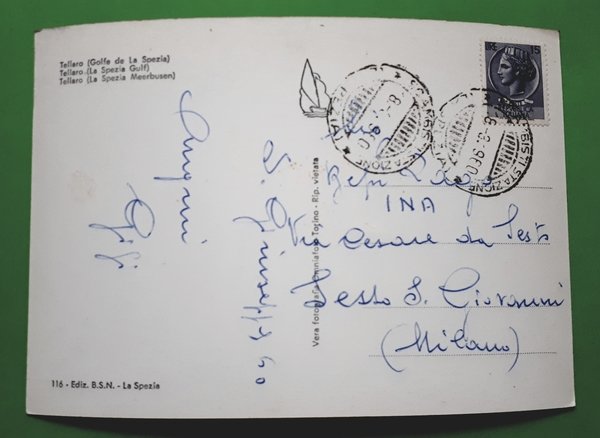 Tellaro (Golfe de La Spezia)
Tellaro (La Spezia Gulf)
Tellaro (La Spezia Meerbusen)
LIRE 15
Auguri
Gigi
S. Giuseppe 60
Vera fotografia Omniafoto Torino - Rip. vietata
INA
Via Cesare da Sesto
Sesto S. Giovanni
(Milano)
116 - Ediz. B.S.N. - La Spezia